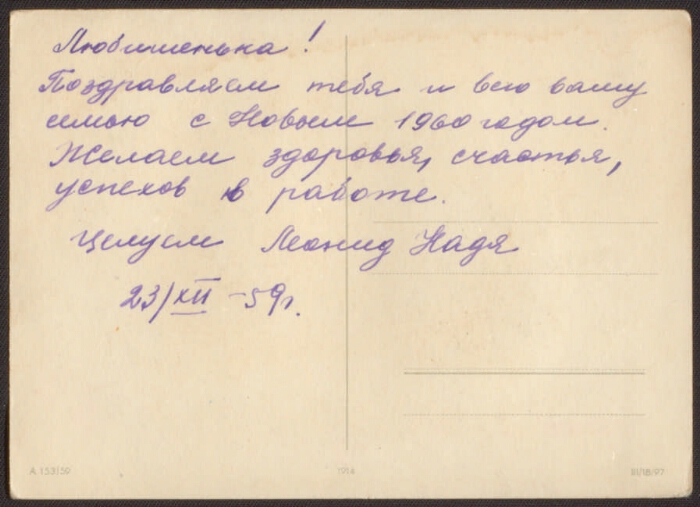 Любишенька!
Поздравляем тебя и всю вашу
семью с Новым 1960 годом.
Желаем здоровья, счастья,
успехов в работе.
Целуем Леонид Надя
23/XII -59г.
A 153/59 1914 III/18/97